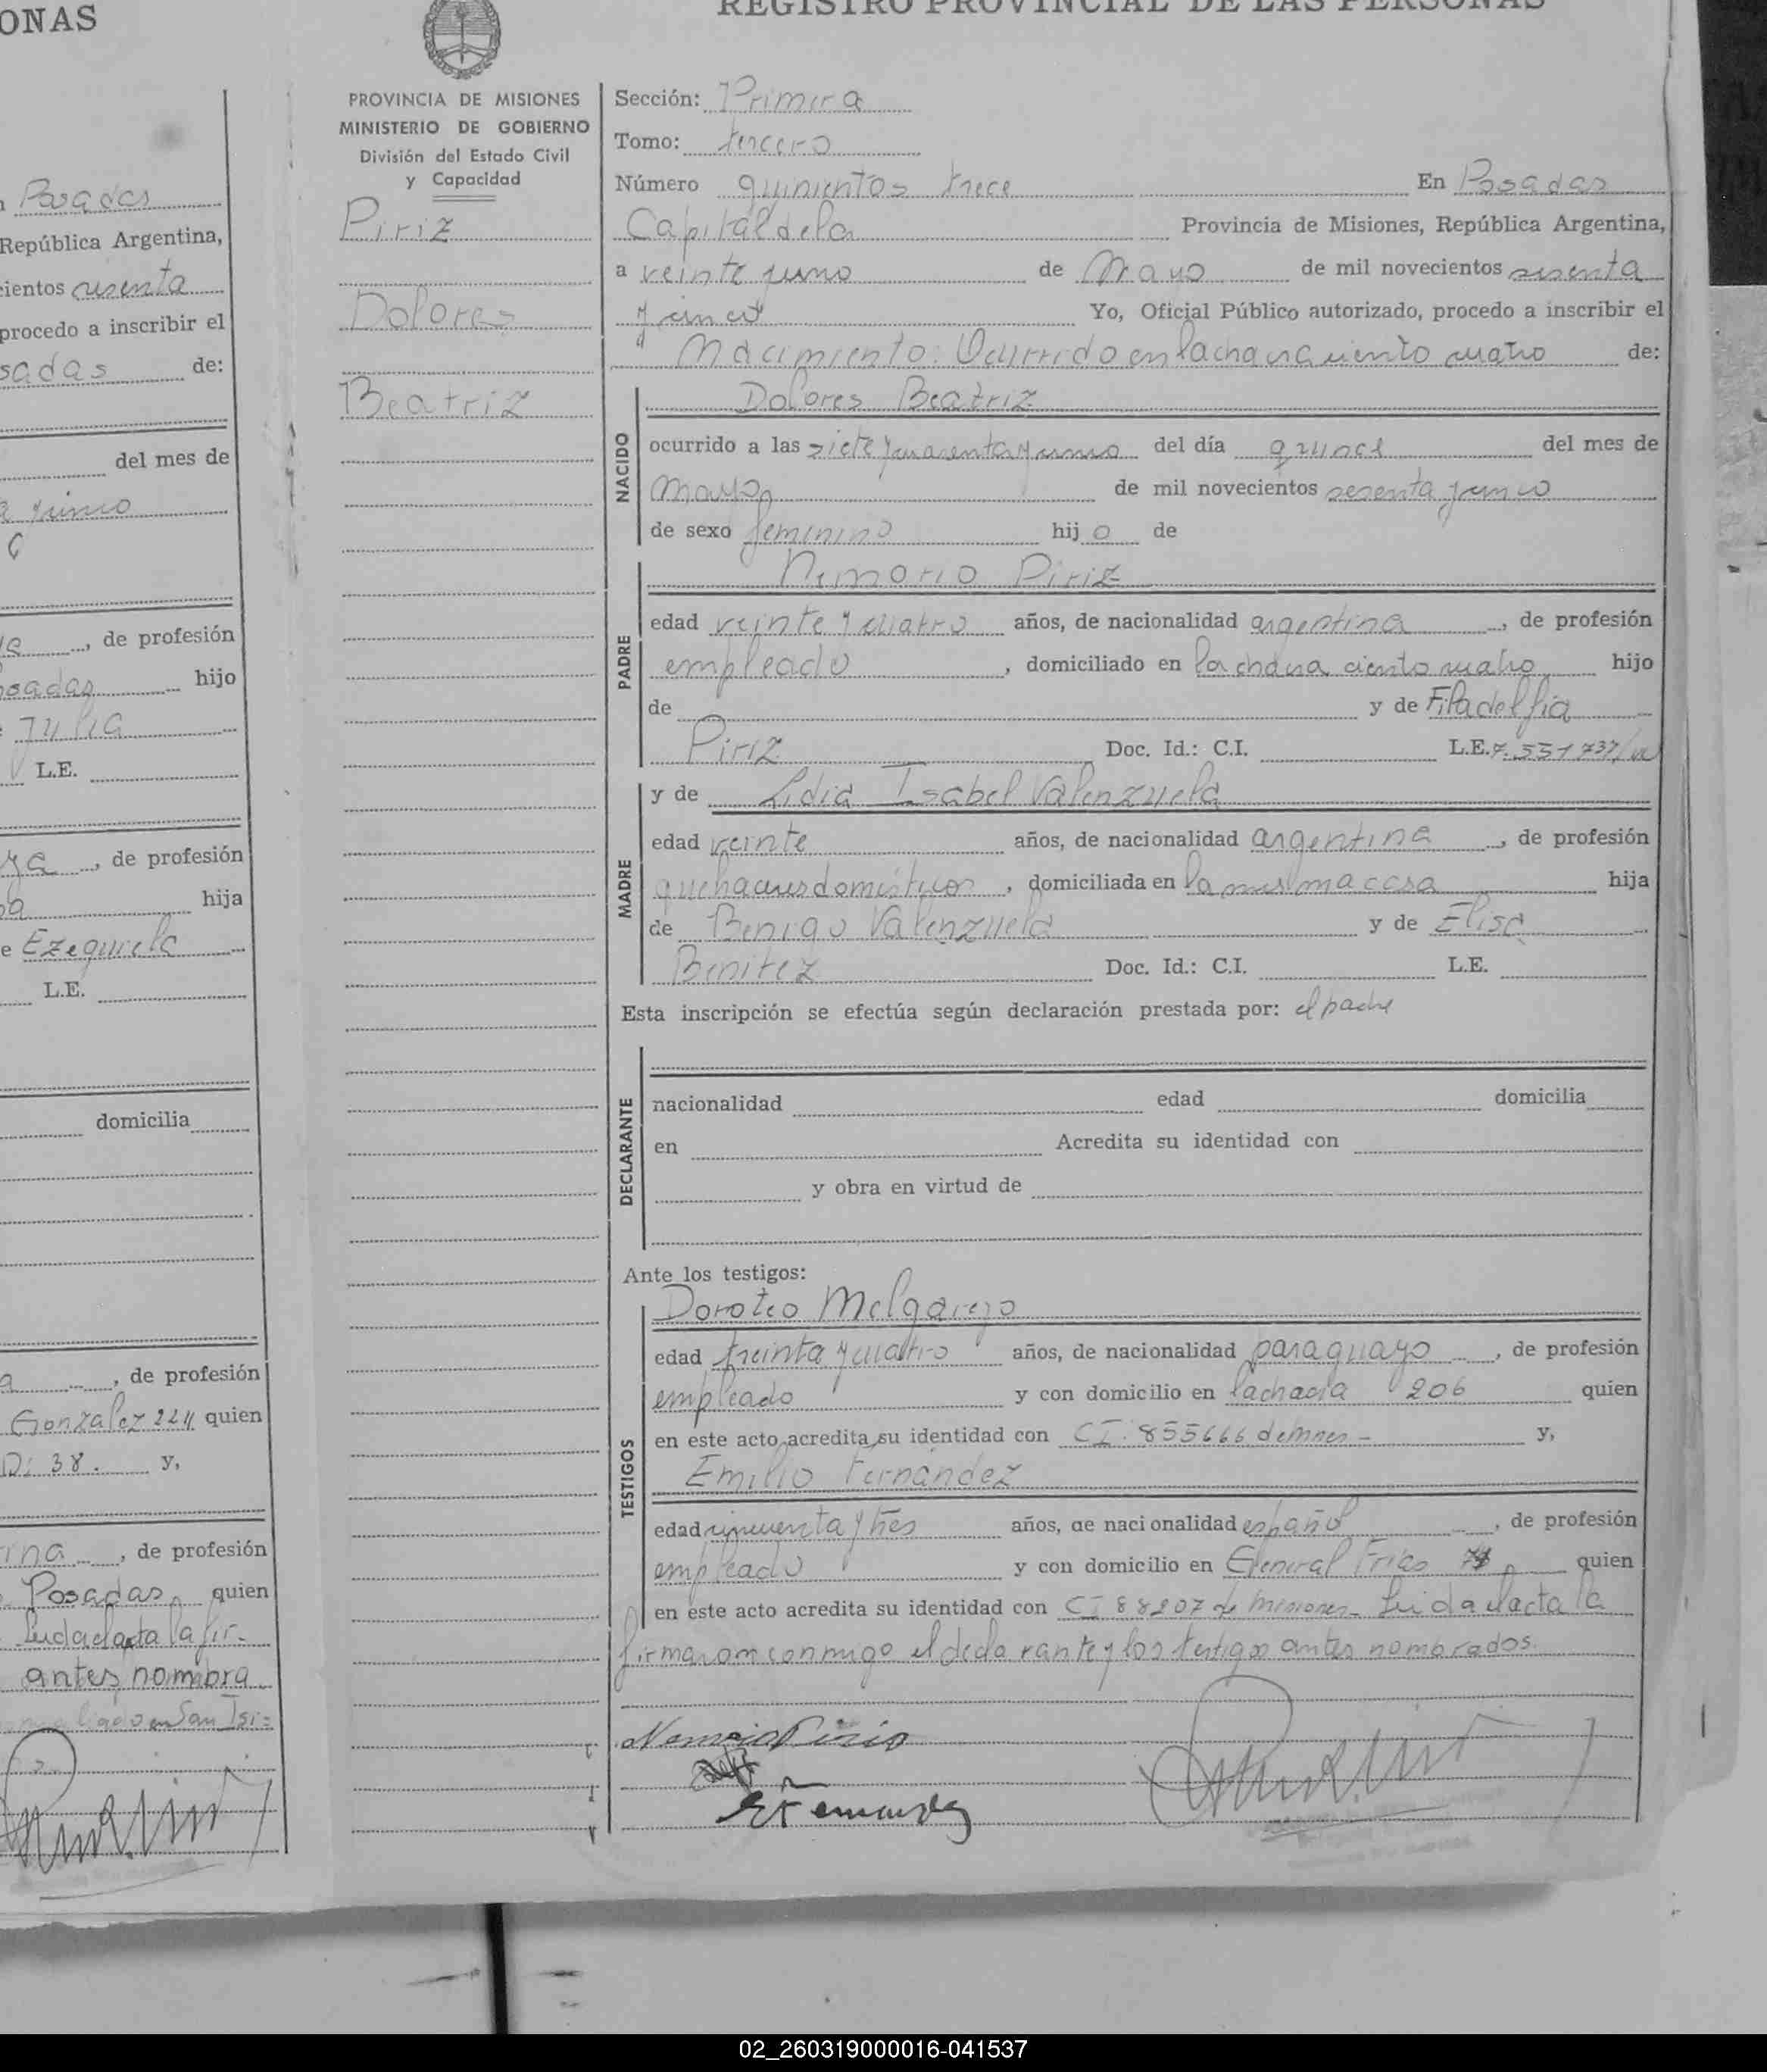 ONAS
Posadas
República Argentina,
cientos sesenta
procedo a inscribir el
sadas de:
del mes de
a y cinco
de profesión
Posadas hijo
Julia
L.E.
de profesión
hija
e Ezequiela
L.E.
domicilia
, de profesión
Gonzalez 224 quien
D: 38. y,
ina , de profesión
Posadas quien
Leida el acta la fir-
antes nombra
en San Isi-
REGISTRO PROVINCIAL DE LAS PERSONAS
PROVINCIA DE MISIONES
MINISTERIO DE GOBIERNO
División del Estado Civil
y Capacidad
Piriz
Dolores
Beatriz
Sección: Primera
Tomo: tercero
Número quinientos trece En Posadas
Capital de la Provincia de Misiones, República Argentina,
a veinte y uno de Mayo de mil novecientos sesenta
y cinco Yo, Oficial Público autorizado, procedo a inscribir el
Nacimiento: Ocurrido en la chacra ciento cuatro de:
NACIDO
Dolores Beatriz
ocurrido a las siete y cuarenta y uno del día quince del mes de
mayo de mil novecientos sesenta y cinco
de sexo femenino hij o de
PADRE
Nemorio Piriz
edad veinte y cuatro años, de nacionalidad argentina , de profesión
empleado , domiciliado en la chacra ciento cuatro hijo
de y de Filadelfia
Piriz Doc. Id.: C.I. L.E. 7.551737/
MADRE
y de Lidia Isabel Valenzuela
edad veinte años, de nacionalidad argentina , de profesión
quehaceres domésticos , domiciliada en la misma casa hija
de Benigo Valenzuela y de Elisa
Benitez Doc. Id.: C.I. L.E.
Esta inscripción se efectúa según declaración prestada por: el padre
DECLARANTE
nacionalidad edad domicilia
en Acredita su identidad con
y obra en virtud de
Ante los testigos:
TESTIGOS
Doroteo Melgarejo
edad treinta y cuatro años, de nacionalidad paraguayo , de profesión
empleado y con domicilio en la chacra 206 quien
en este acto acredita su identidad con CI. 855666 de Mnes - y,
Emilio Fernández
edad cincuenta y tres años, de nacionalidad español , de profesión
empleado y con domicilio en General Frias quien
en este acto acredita su identidad con CI 88207 de Misiones - Leida el acta la
firmaron conmigo el declarante y los testigos antes nombrados.
Nemorio Piriz
E Fernandez
02_260319000016-041537